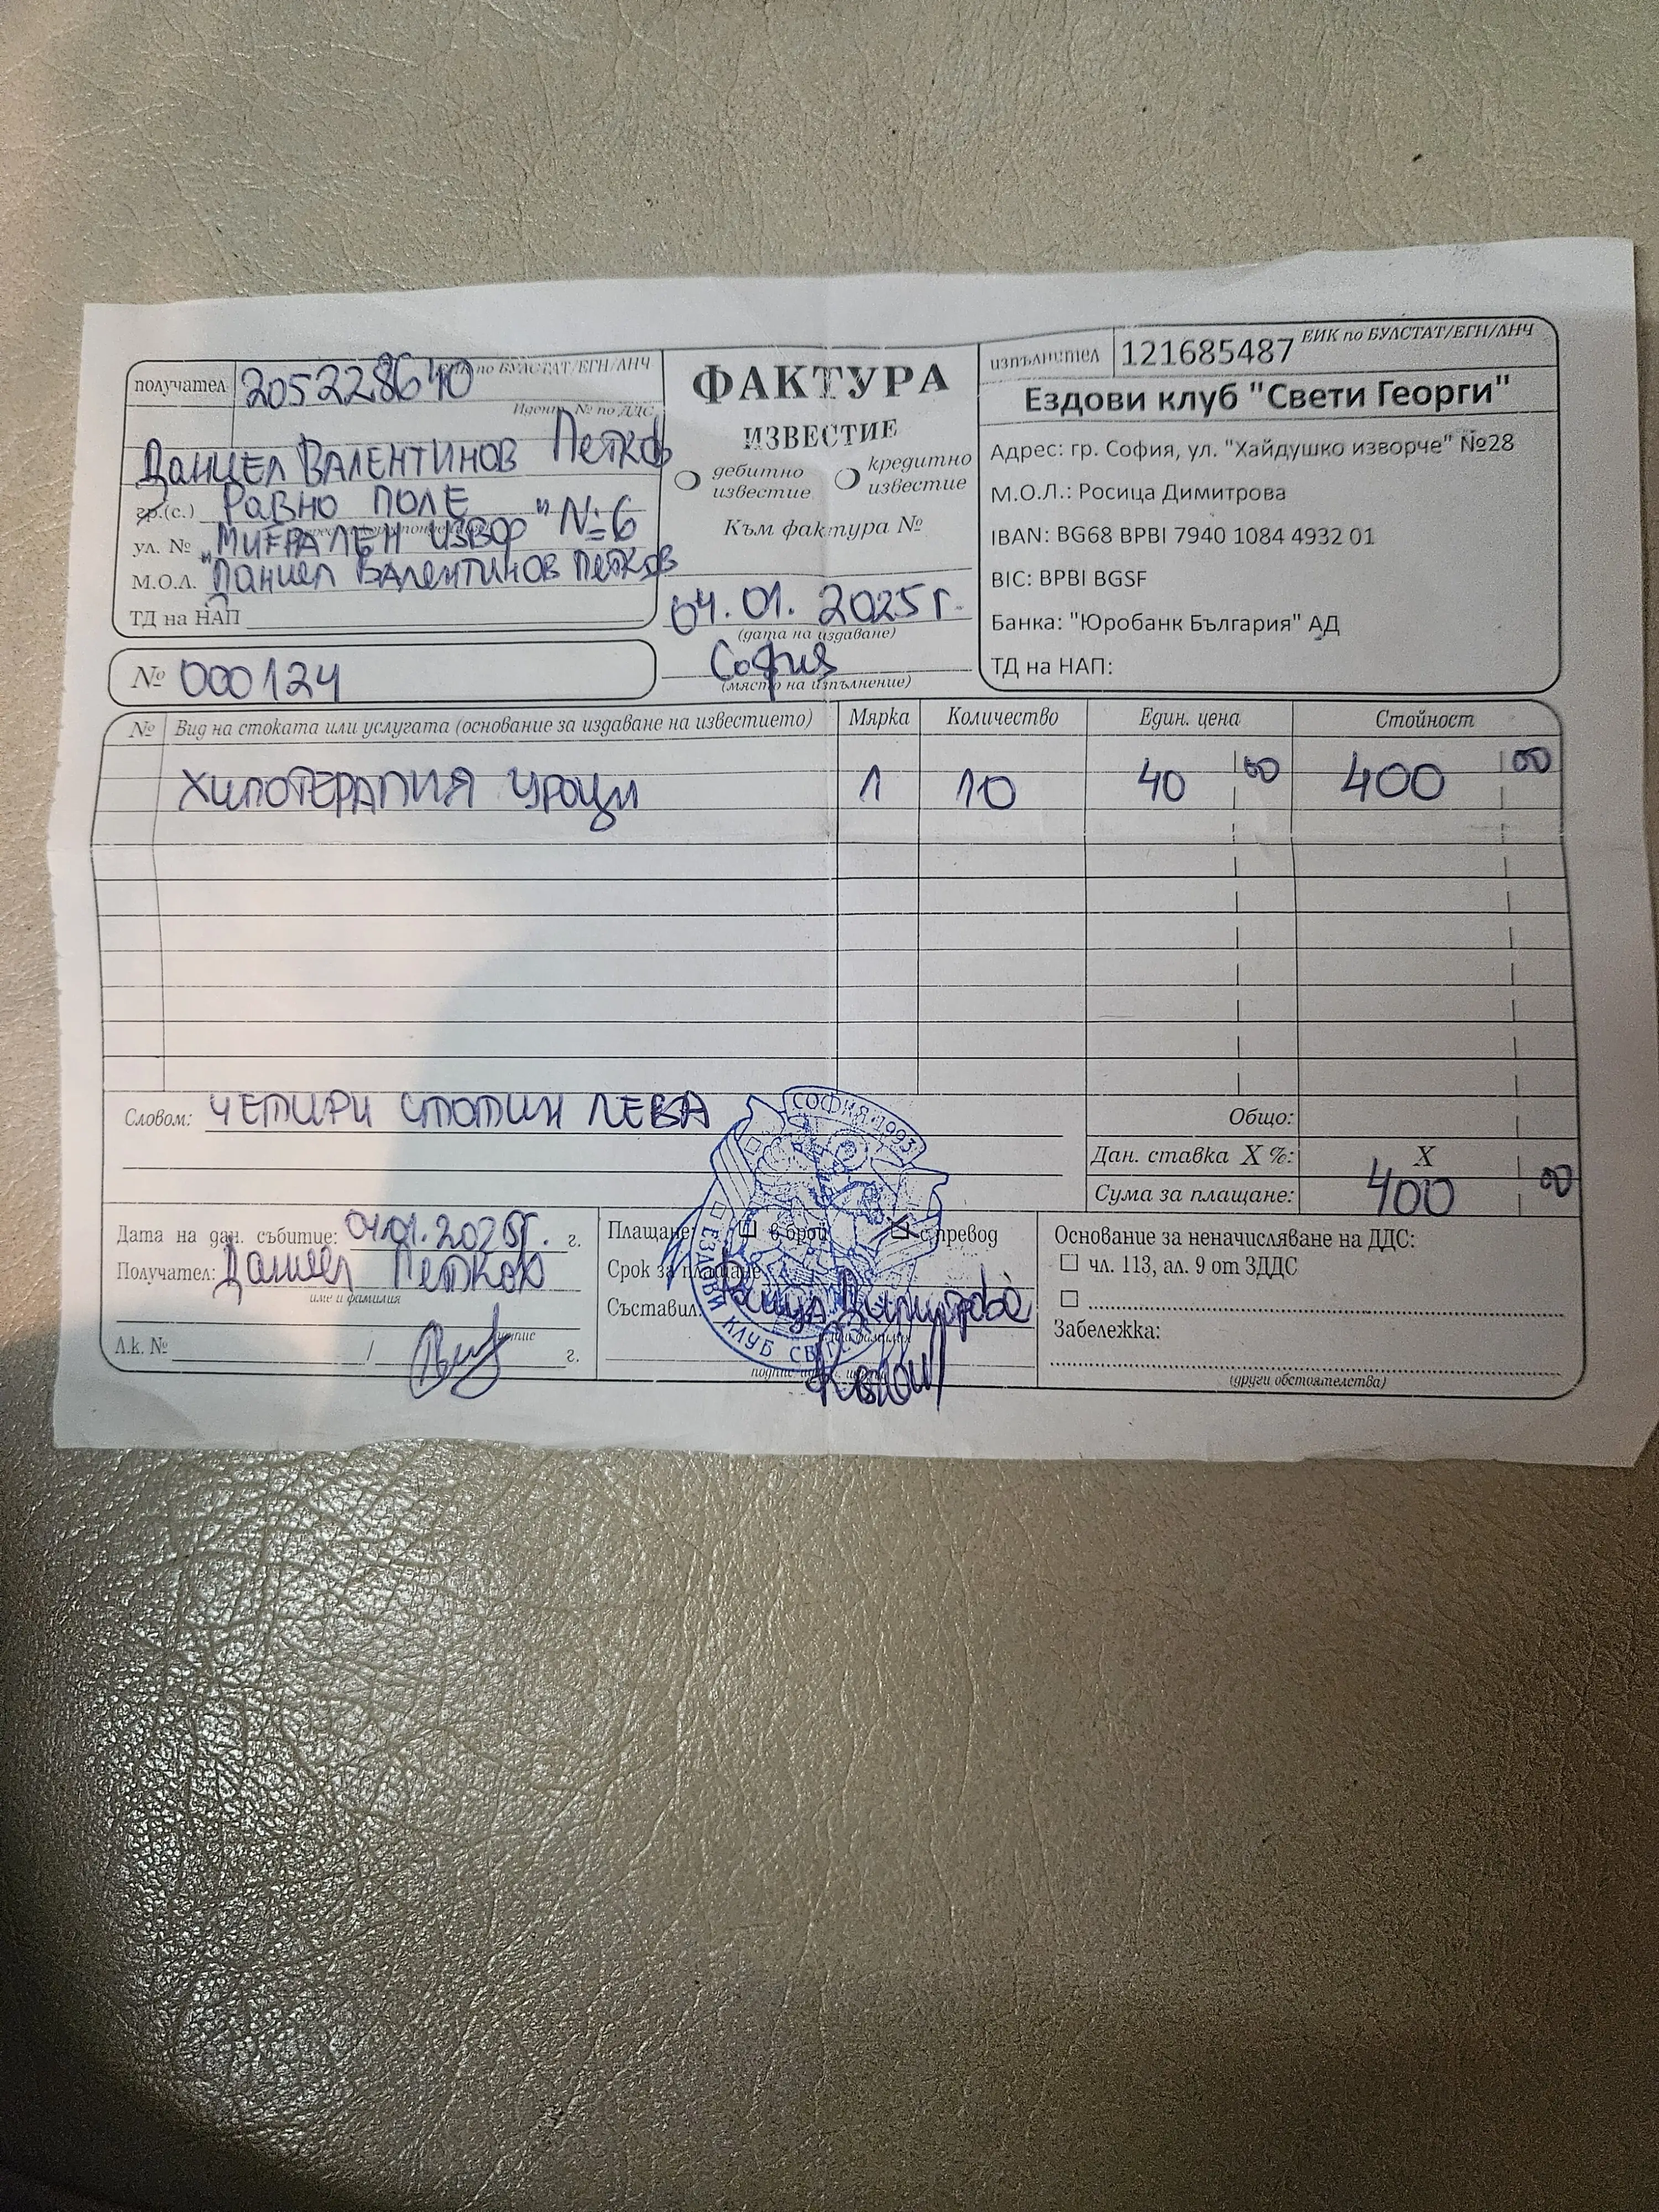 получател 205228640 ЕИК по БУЛСТАТ/ЕГН/ЛНЧ
Идент. № по ДДС
Даниел ВАЛЕНТИНОВ Петков
гр.(с.) Равно ПОЛЕ
ул. № "МИНЕРАЛЕН ИЗВОР" №6
М.О.Л. Даниел Валентинов Петков
ТД на НАП
№ 000124
ФАКТУРА
ИЗВЕСТИЕ
дебитно известие
кредитно известие
Към фактура №
04.01.2025г.
(дата на издаване)
София
(място на изпълнение)
изпълнител 121685487 ЕИК по БУЛСТАТ/ЕГН/ЛНЧ
Ездови клуб "Свети Георги"
Адрес: гр. София, ул. "Хайдушко изворче" №28
М.О.Л.: Росица Димитрова
IBAN: BG68 BPBI 7940 1084 4932 01
BIC: BPBI BGSF
Банка: "Юробанк България" АД
ТД на НАП:
№ Вид на стоката или услугата (основание за издаване на известието) Мярка Количество Един. цена Стойност
ХИПОТЕРАПИЯ уроци 1 10 40 00 400 00
Словом: ЧЕТИРИ СТОТИН ЛЕВА
Общо:
Дан. ставка X %: X
Сума за плащане: 400 00
Дата на дан. събитие: 04.01.2025г. г.
Получател: Даниел Петков
име и фамилия
подпис
Л.к. № / г.
Плащане: в брой с превод
Срок за плащане
Съставил: Росица Димитрова
СОФИЯ·1993
ЕЗДОВИ КЛУБ СВ.
Основание за неначисляване на ДДС:
чл. 113, ал. 9 от ЗДДС
Забележка:
(други обстоятелства)